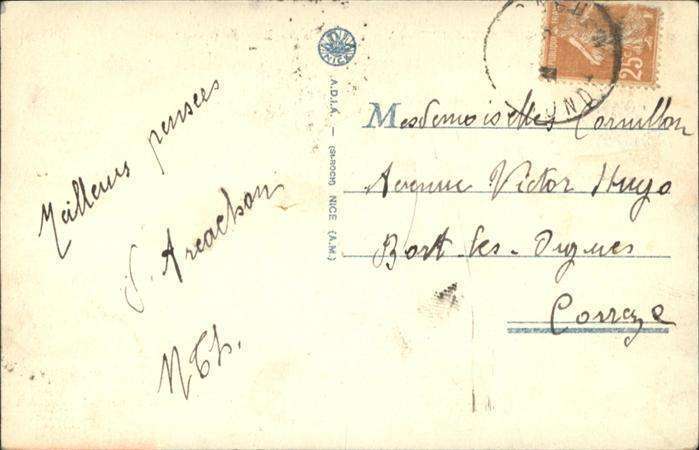 Meilleures pensees
d'Arcachon
N Th.
A.D.I.A. — (St-ROCH) NICE (A.M.)
NICE
25
Mesdemoiselles Cornillon
Avenue Victor Hugo
Bort-les-Orgues
Correze